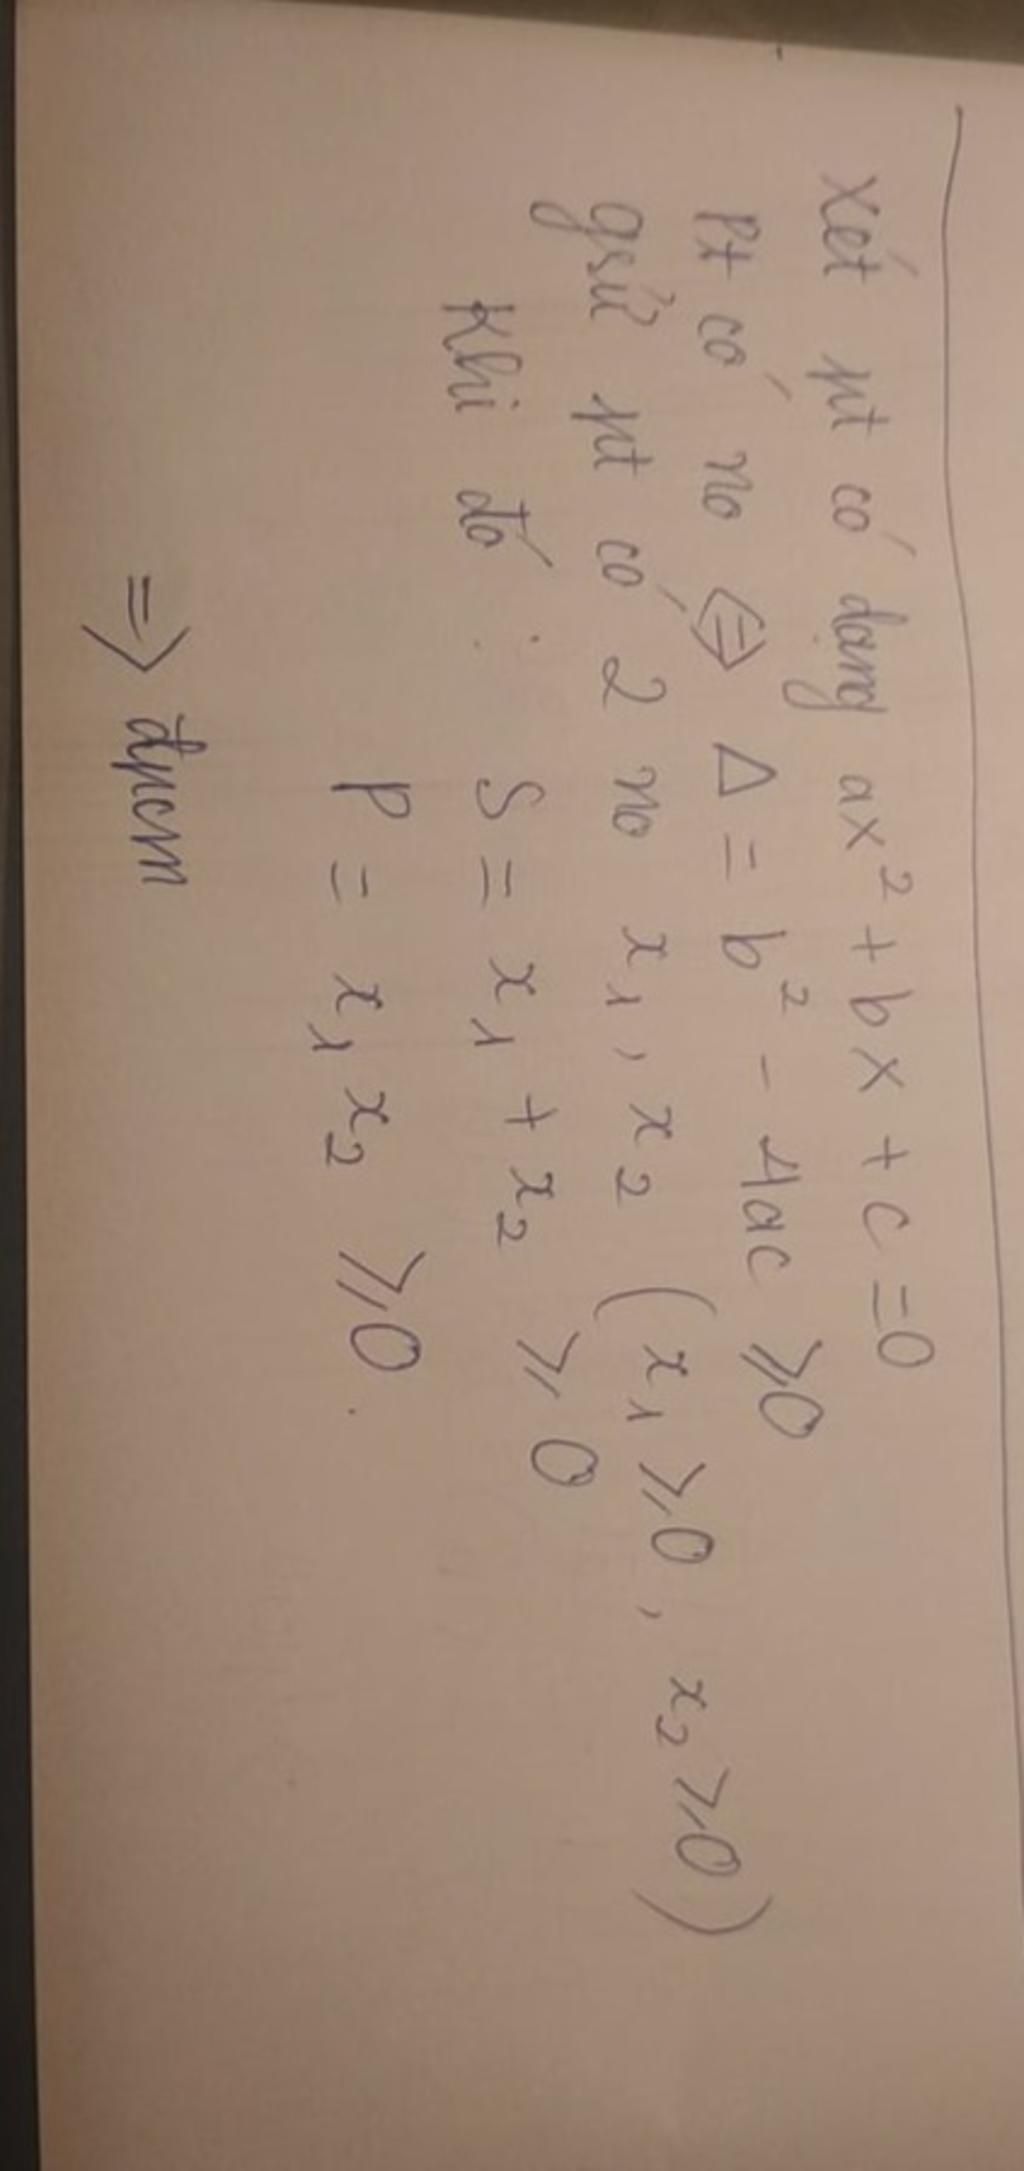 xét pt có dạng ax² + bx + c = 0
Pt có no ⇔ Δ = b² - 4ac ⩾ 0
gsử pt có 2 no x₁, x₂ (x₁ ⩾ 0, x₂ ⩾ 0)
Khi đó : S = x₁ + x₂ ⩾ 0
P = x₁ x₂ ⩾ 0.
=> đpcm